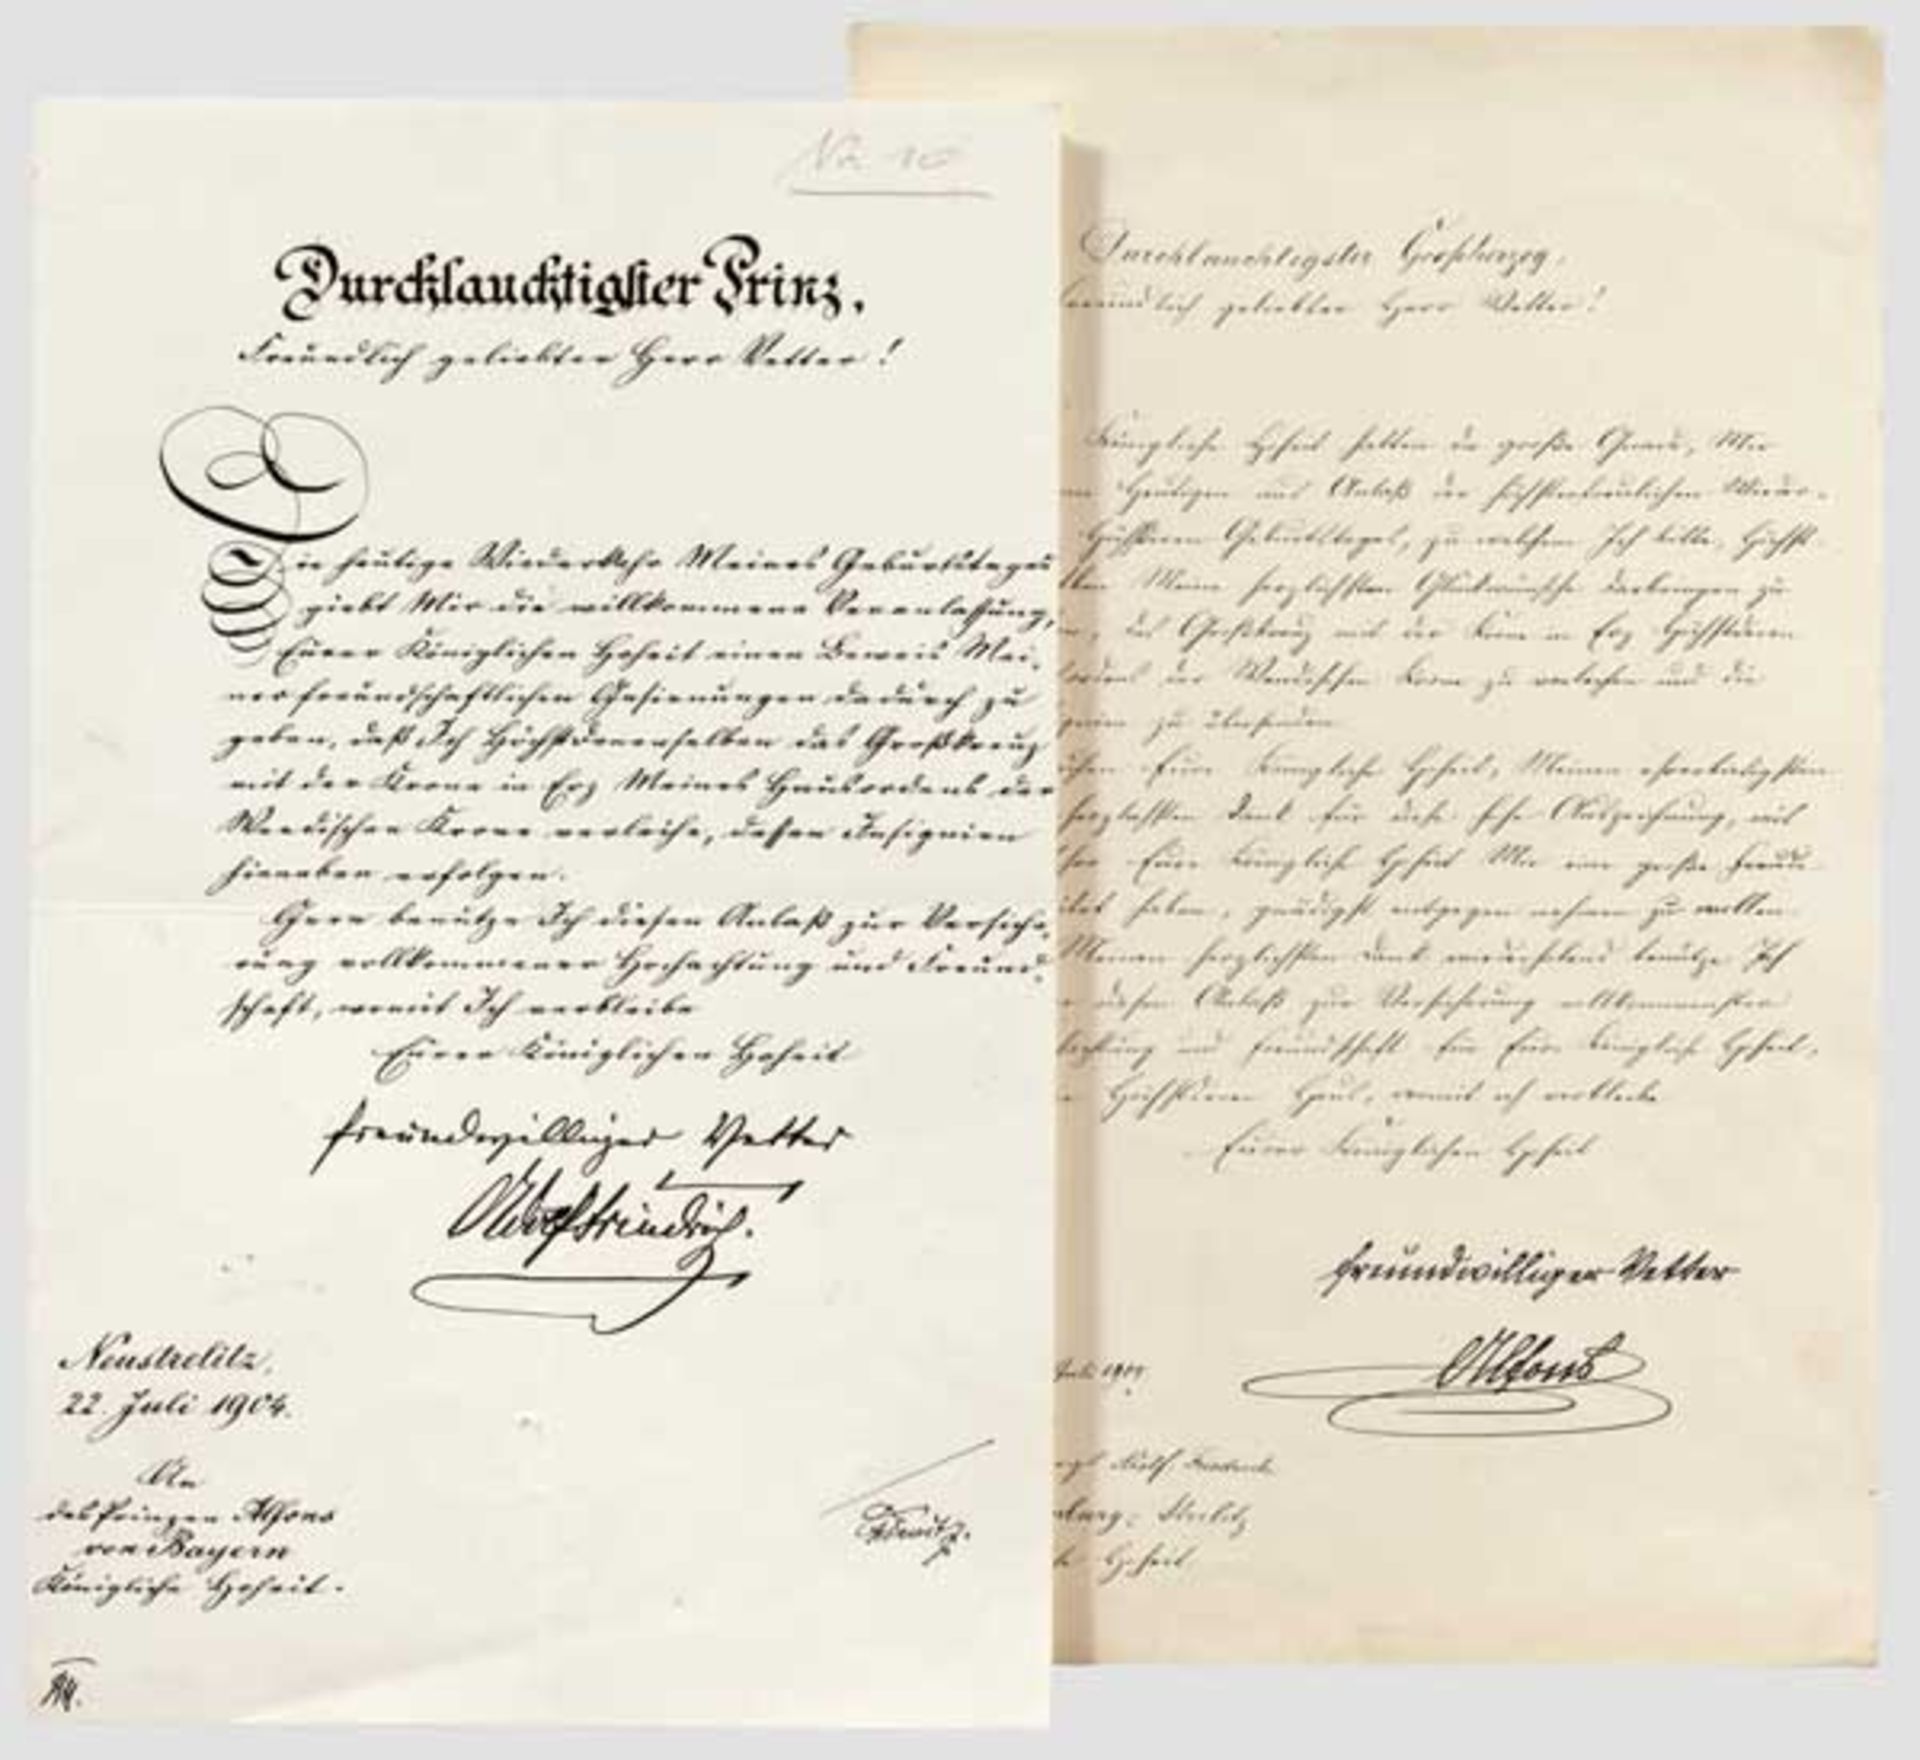 Nr. 10
Durchlauchtigster Prinz,
Freundlich geliebter Herr Vetter!
Die heutige Wiederkehr Meines Geburtstages
giebt Mir die willkommene Veranlassung,
Eurer Königlichen Hoheit einen Beweis Mei-
ner freundschaftlichen Gesinnungen dadurch zu
geben, daß Ich Höchstdenenselben das Großkreuz
mit der Krone in Erz Meines Hausordens der
Wendischen Krone verleihe, dessen Insignien
hieneben erfolgen.
Gern benutze Ich diesen Anlaß zur Versiche-
rung vollkommener Hochachtung und Freund-
schaft, womit Ich verbleibe
Eurer Königlichen Hoheit
freundwilliger Vetter
Adolf Friedrich.
Neustrelitz,
22. Juli 1904.
An
des Prinzen Alfons
von Bayern
Königliche Hoheit.
Durchlauchtigster Großherzog,
freundlich geliebter Herr Vetter!
Königliche Hoheit hatten die große Gnade, Mir
Heutigen aus Anlaß der höchsterfreulichen Wieder-
Höchstderen Geburtstages, zu welchem Ich bitte, Höchst-
Meine herzlichsten Glückwünsche darbringen zu
das Großkreuz mit der Krone in Erz Höchstderen
der Wendischen Krone zu verleihen und die
zu übersenden.
Eure Königliche Hoheit, Meinen
herzlichsten Dank für diese hohe Auszeichnung, mit
Eure Königliche Hoheit Mir eine große Freude
haben, gnädigst entgegen nehmen zu wollen.
Meinen herzlichsten Dank wiederholend benütze Ich
diesen Anlaß zur Versicherung vollkommenster
und Freundschaft für Eure Königliche Hoheit,
Höchstderen Haus, womit ich verbleibe
Eurer Königlichen Hoheit
freundwilliger Vetter
Alfons
Juli 1904
Adolf Friedrich
Strelitz
Hoheit